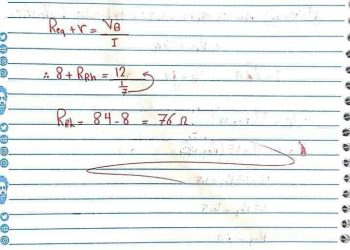 Req + r = VB / I
∴ 8 + RRh = 12 / (1/7)
RRh = 84 - 8 = 76 Ω